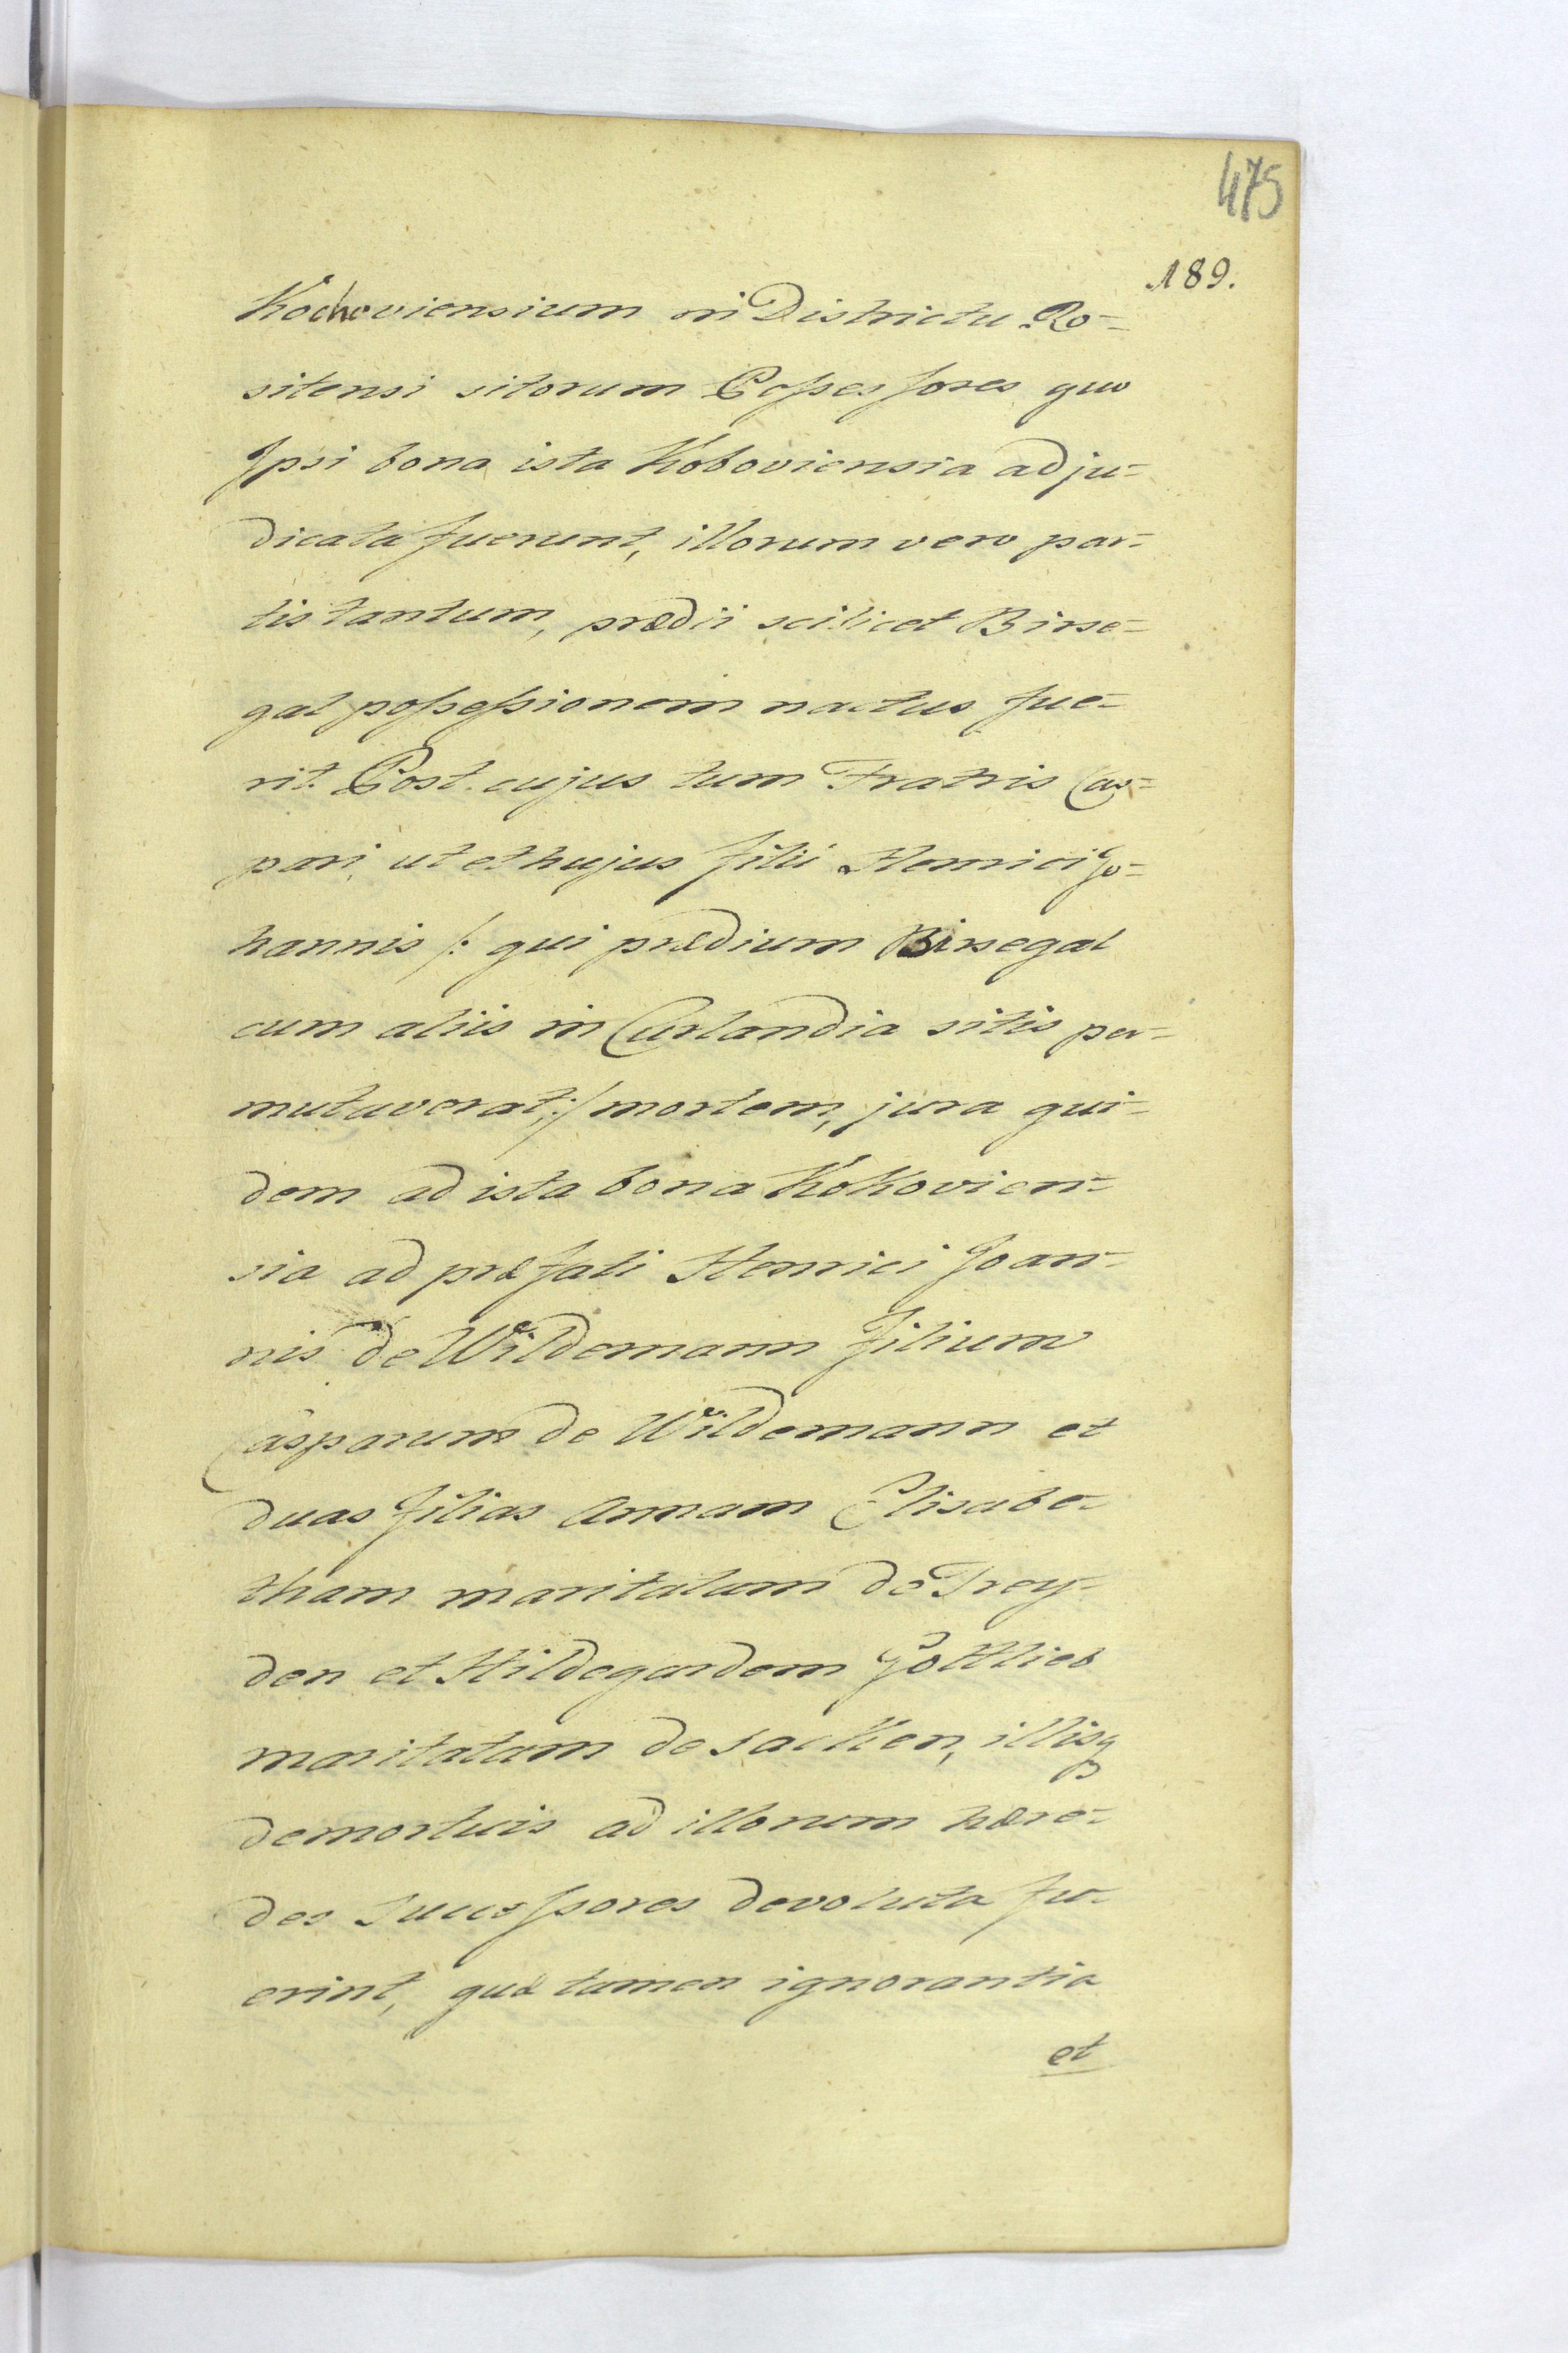 475
189.
Kochoviensium in Districtu Ro-
sitensi sitorum Possessores quo
Ipsi bona ista Koboviensia adju-
dicata fuerunt, illorum vero par-
tis tantum, prædii scilicet Birse-
gal possessionem nactus fue-
rit. Post cujus tum Fratris Cas-
pari, ut et hujus filii Henrici Jo-
hannis /: qui prædium Birsegal
cum aliis in Curlandia sitis per-
mutaverat, :/ mortem, jura qui-
dem ad ista bona Kokovien-
sia ad præfati Henrici Joan-
nis de Wildemann Filium
Casparum de Wildemann et
duas filias Annam Elisabe-
tham maritatam de Trey-
den et Hildegardem Gottlieb
maritatam de Sacken, illisq
demortuis ad illorum hære-
des Successores devoluta fu-
erint, quæ tamen ignorantia
et